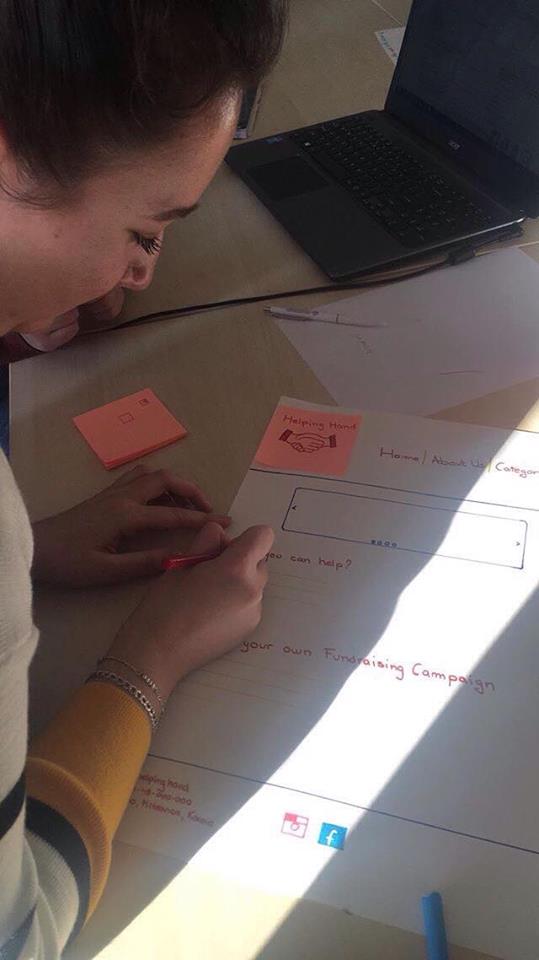 Helping Hand
Home | About Us | Categor
< >
you can help?
your own Fundraising Campaign
elping hand
f
acer